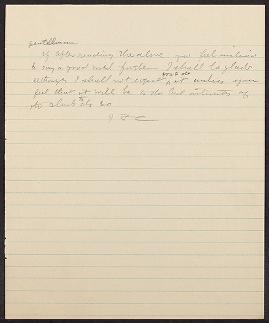 gentlemen
If after reading the above you feel inclined
to say a good word for him I shall be glad
although I shall not expect you to do it unless you
feel that it will be to the best interests of
the club to do so